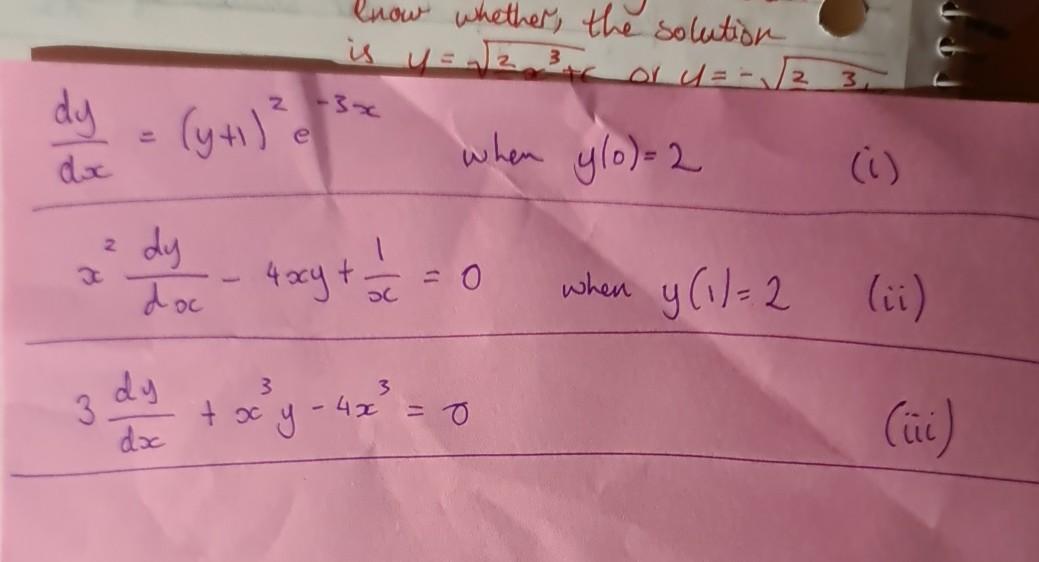 know whether, the solution
is y = √2 x³+c or y = -√2 3
dy/dx = (y+1)² e⁻³ˣ when y(0)=2 (i)
x² dy/dx - 4xy + 1/x = 0 when y(1)=2 (ii)
3 dy/dx + x³y - 4x³ = 0 (iii)